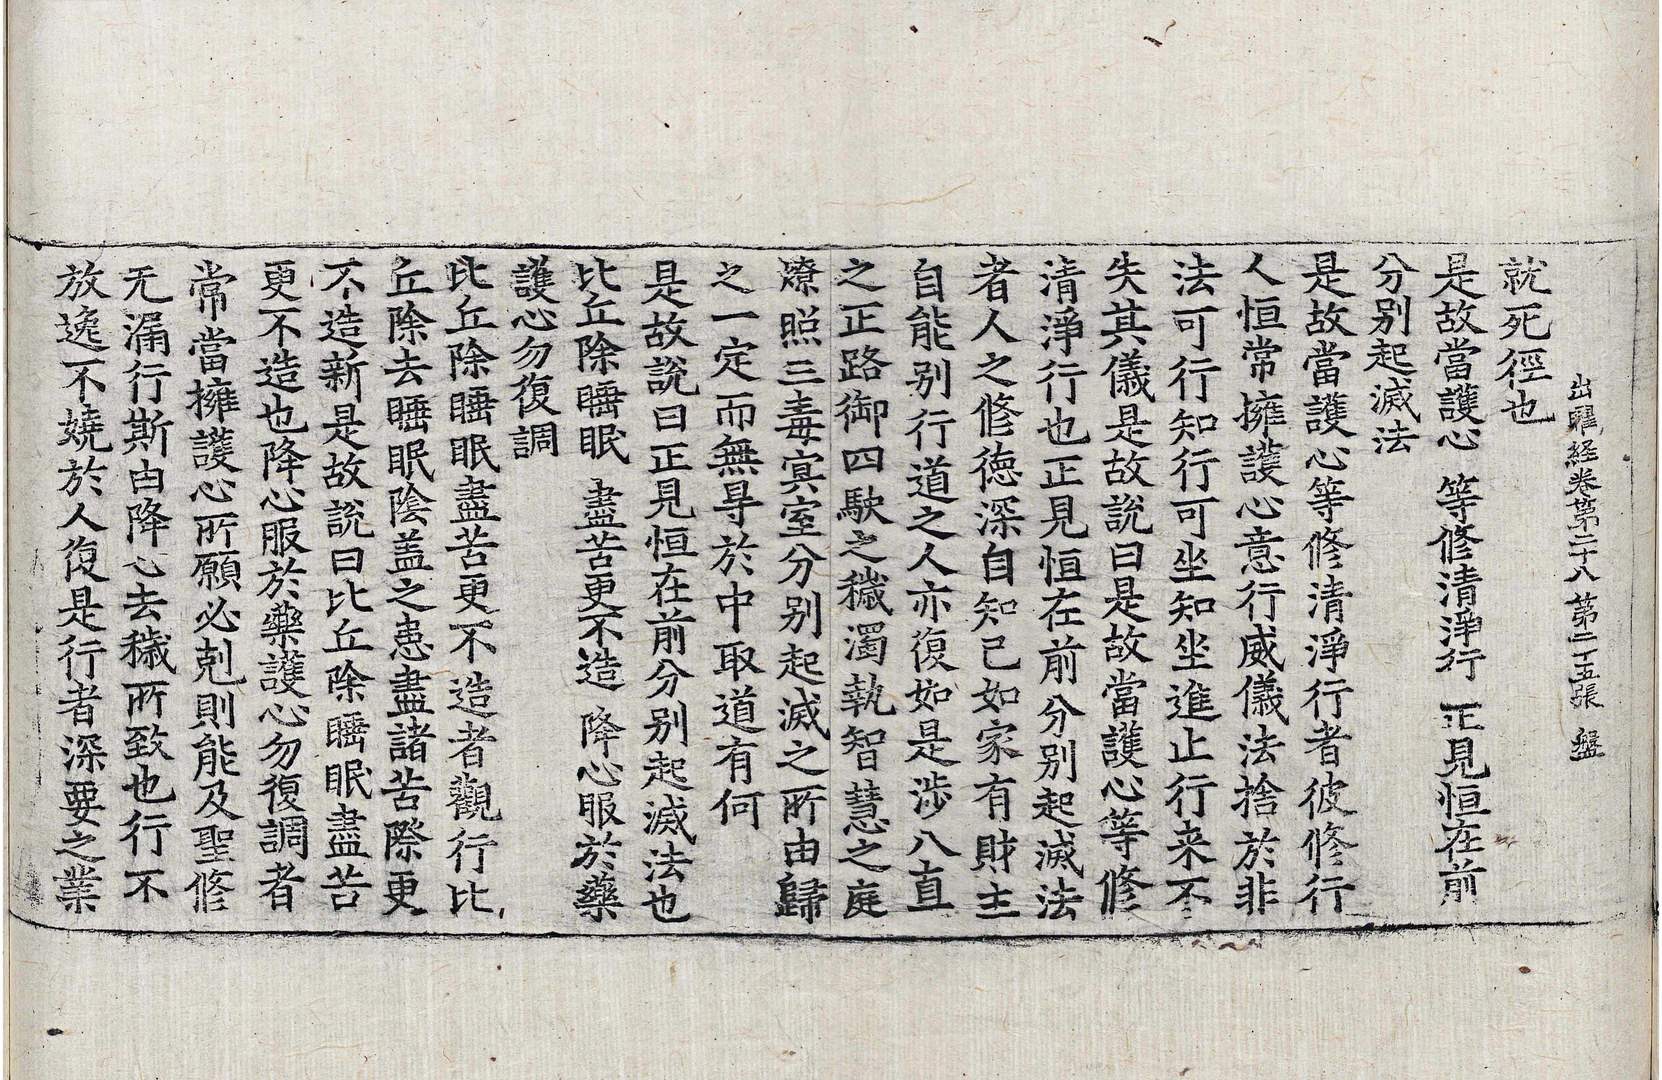 出曜経卷第二十八 第二十五張 盤
就死徑也
是故當護心 等修清淨行 正見恒在前
分別起滅法
是故當護心等修清淨行者彼修行
人恒常擁護心意行威儀法捨於非
法可行知行可坐知坐進止行来不
失其儀是故說曰是故當護心等修
清淨行也正見恒在前分別起滅法
者人之修德深自知已如家有財主
自能別行道之人亦復如是涉八直
之正路御四駛之穢濁執智慧之庭
燎照三毒㝠室分別起滅之所由歸
之一定而無㝵於中取道有何
是故說曰正見恒在前分別起滅法也
比丘除睡眠 盡苦更不造 降心服於藥
護心勿復調
比丘除睡眠盡苦更不造者觀行比
丘除去睡眠陰蓋之患盡諸苦際更
不造新是故說曰比丘除睡眠盡苦
更不造也降心服於藥護心勿復調者
常當擁護心所願必剋則能及聖修
无漏行斯由降心去穢所致也行不
放逸不嬈於人復是行者深要之業